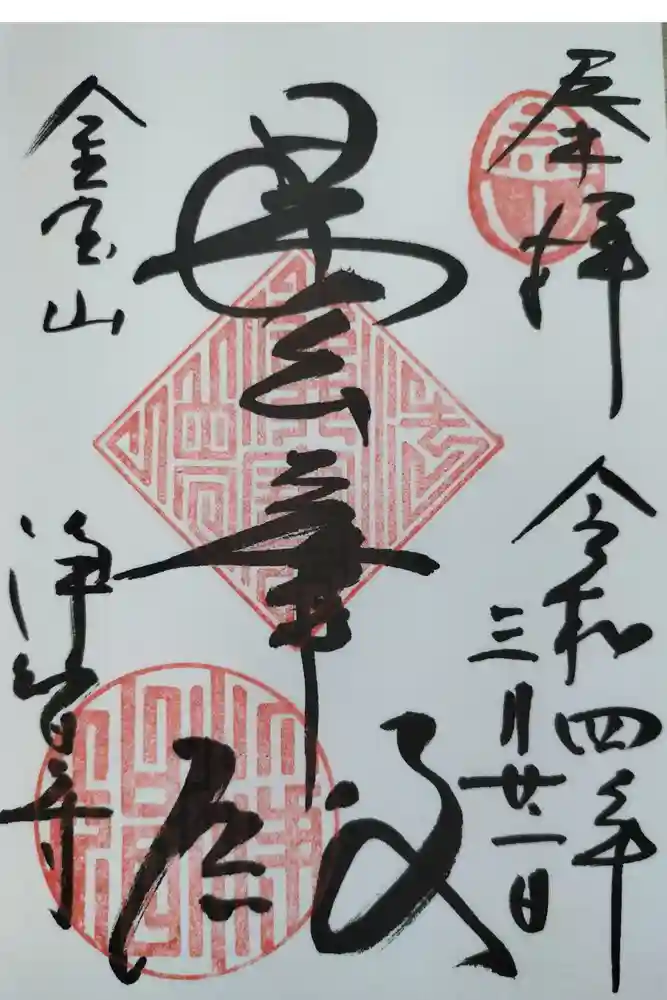 奉拝
令和四年
三月廿二日
曇華殿
金宝山
浄智寺